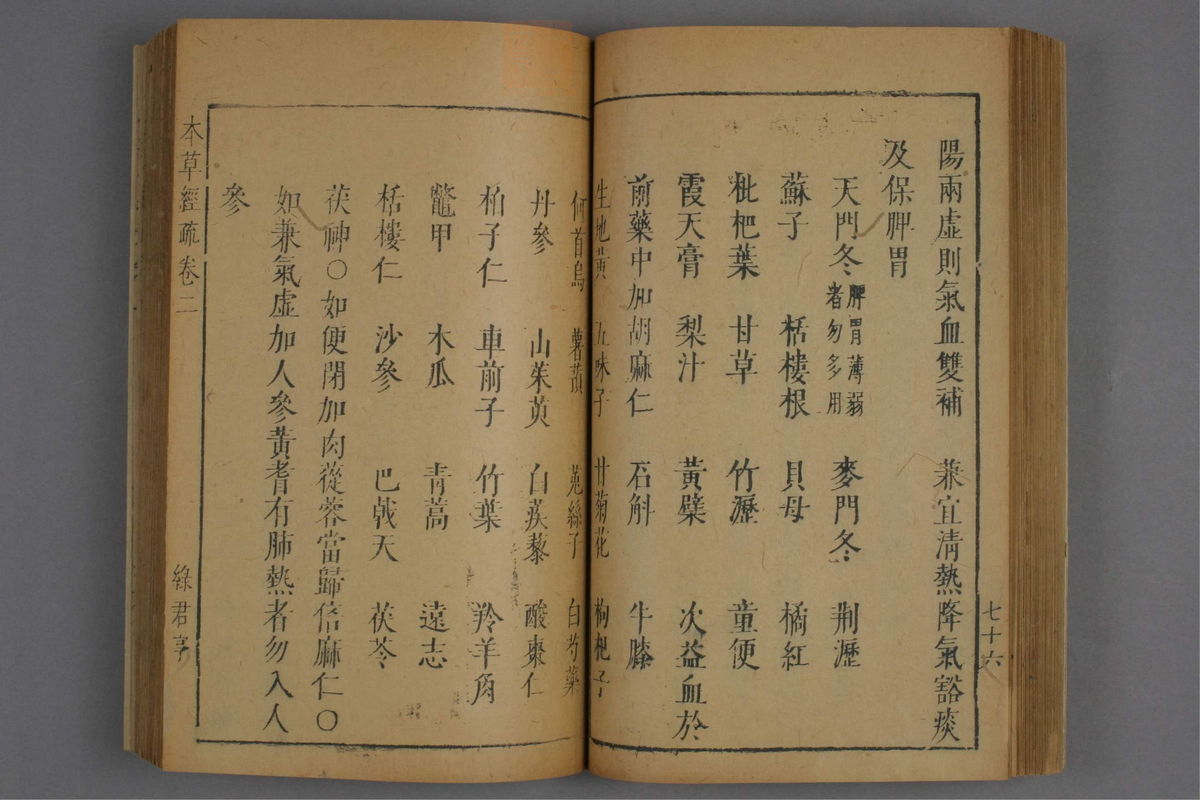 陽兩虛則氣血雙補　兼宜清熱降氣豁痰
及保脾胃
天門冬脾胃薄弱者勿多用　麥門冬　荆瀝
蘇子　栝樓根　貝母　橘紅
枇杷葉　甘草　竹瀝　童便
霞天膏　梨汁　黃檗　次益血於
前藥中加胡麻仁　石斛　牛膝
生地黃　五味子　甘菊花　枸杞子
何首烏　薯蕷　菟絲子　白芍藥
丹參　山茱萸　白蒺藜　酸棗仁
柏子仁　車前子　竹葉　羚羊角
鼈甲　木瓜　青蒿　遠志
栝樓仁　沙參　巴戟天　茯苓
茯神〇如便閉加肉蓯蓉當歸倍麻仁〇
如兼氣虛加人參黃耆有肺熱者勿入人
參
本草經疏卷二
綠君亭
七十六